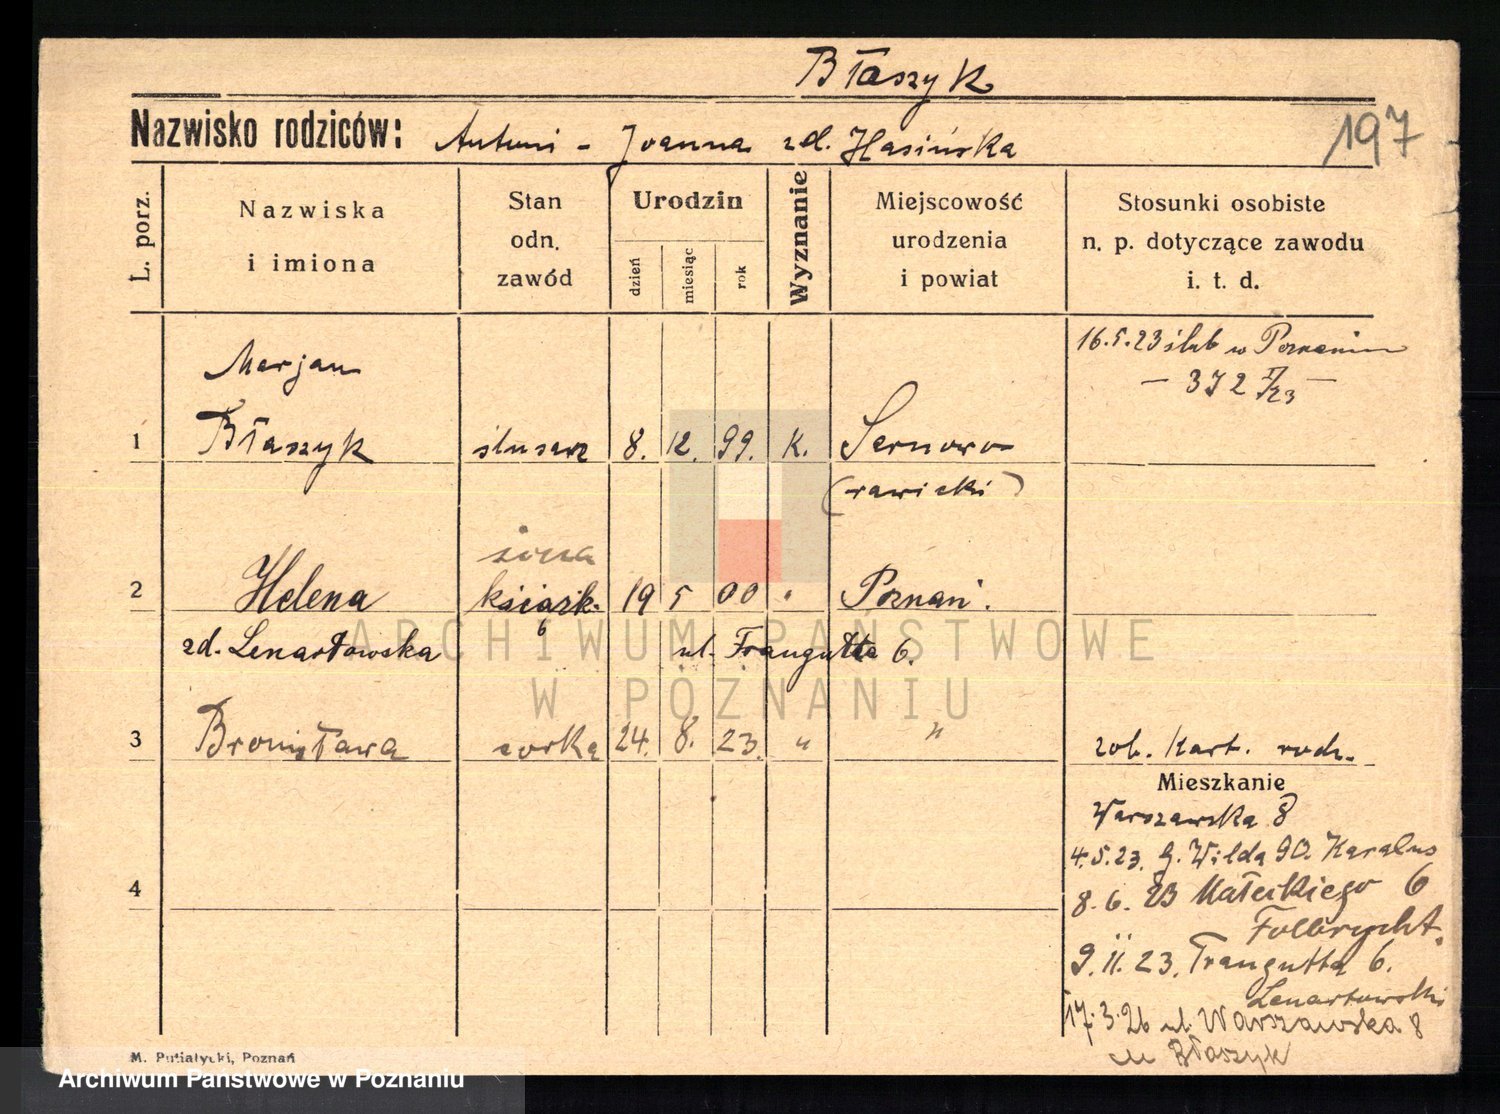 Błaszyk
Nazwisko rodziców: Antoni - Joanna zd. Hasińska
197
L. porz.
Nazwiska i imiona
Stan odn. zawód
Urodzin
dzień
miesiąc
rok
Wyznanie
Miejscowość urodzenia i powiat
Stosunki osobiste
n. p. dotyczące zawodu
i. t. d.
16.5.23 ślub w Poznaniu
Marjan
1 Błaszyk ślusarz 8. 12. 99. K. Sernowo
(rawicki)
żona
2 Helena książk. 19 5 00 " Poznań.
zd. Lenartowska ul. Traugutta 6.
3 Bronisława corka 24. 8. 23. " " zob. Kart. rodz.
Mieszkanie
Warszawska 8
4.5.23. G. Wilda 90. Karalus
4
8.6.23 Małeckiego 6
Follrycht.
9.11.23. Traugutta 6.
Lenartowski
17.3.26 ul. Warszawska 8
Błaszyk
M. Putiatycki, Poznań
ARCHIWUM PAŃSTWOWE
W POZNANIU
Archiwum Państwowe w Poznaniu